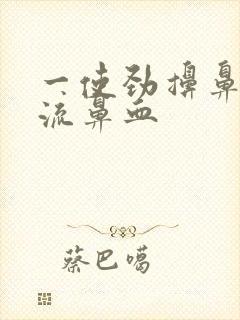 一使劲擤鼻
流鼻血
蔡巴噶